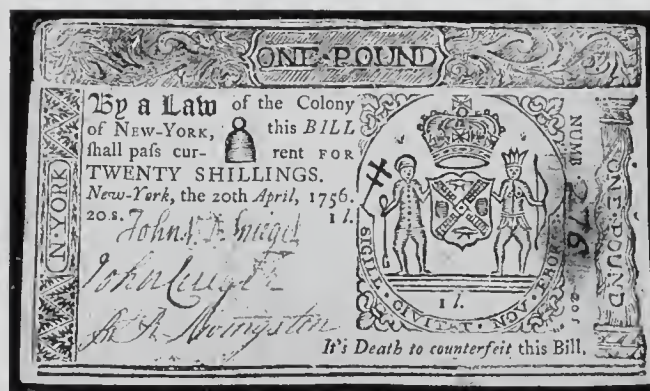 ONE·POUND
By a Law of the Colony
of NEW-YORK, this BILL
ſhall paſs cur- rent FOR
TWENTY SHILLINGS.
New-York, the 20th April, 1756.
20 s. 1 l.
John
John Cruger
Livingston
N·YORK
SIGILL · CIVITAT · NOV · EBOR
1 l.
NUMB
20 s
ONE·POUND
It's Death to counterfeit this Bill.